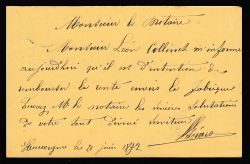 Monsieur le Notaire
Monsieur Léon Collinet m'informe
aujourd'hui qu'il est d'intention de
rembourser la rente envers la fabrique
M. le notaire les sincères salutations
de votre tout dévoué serviteur
le 20 juin 1892